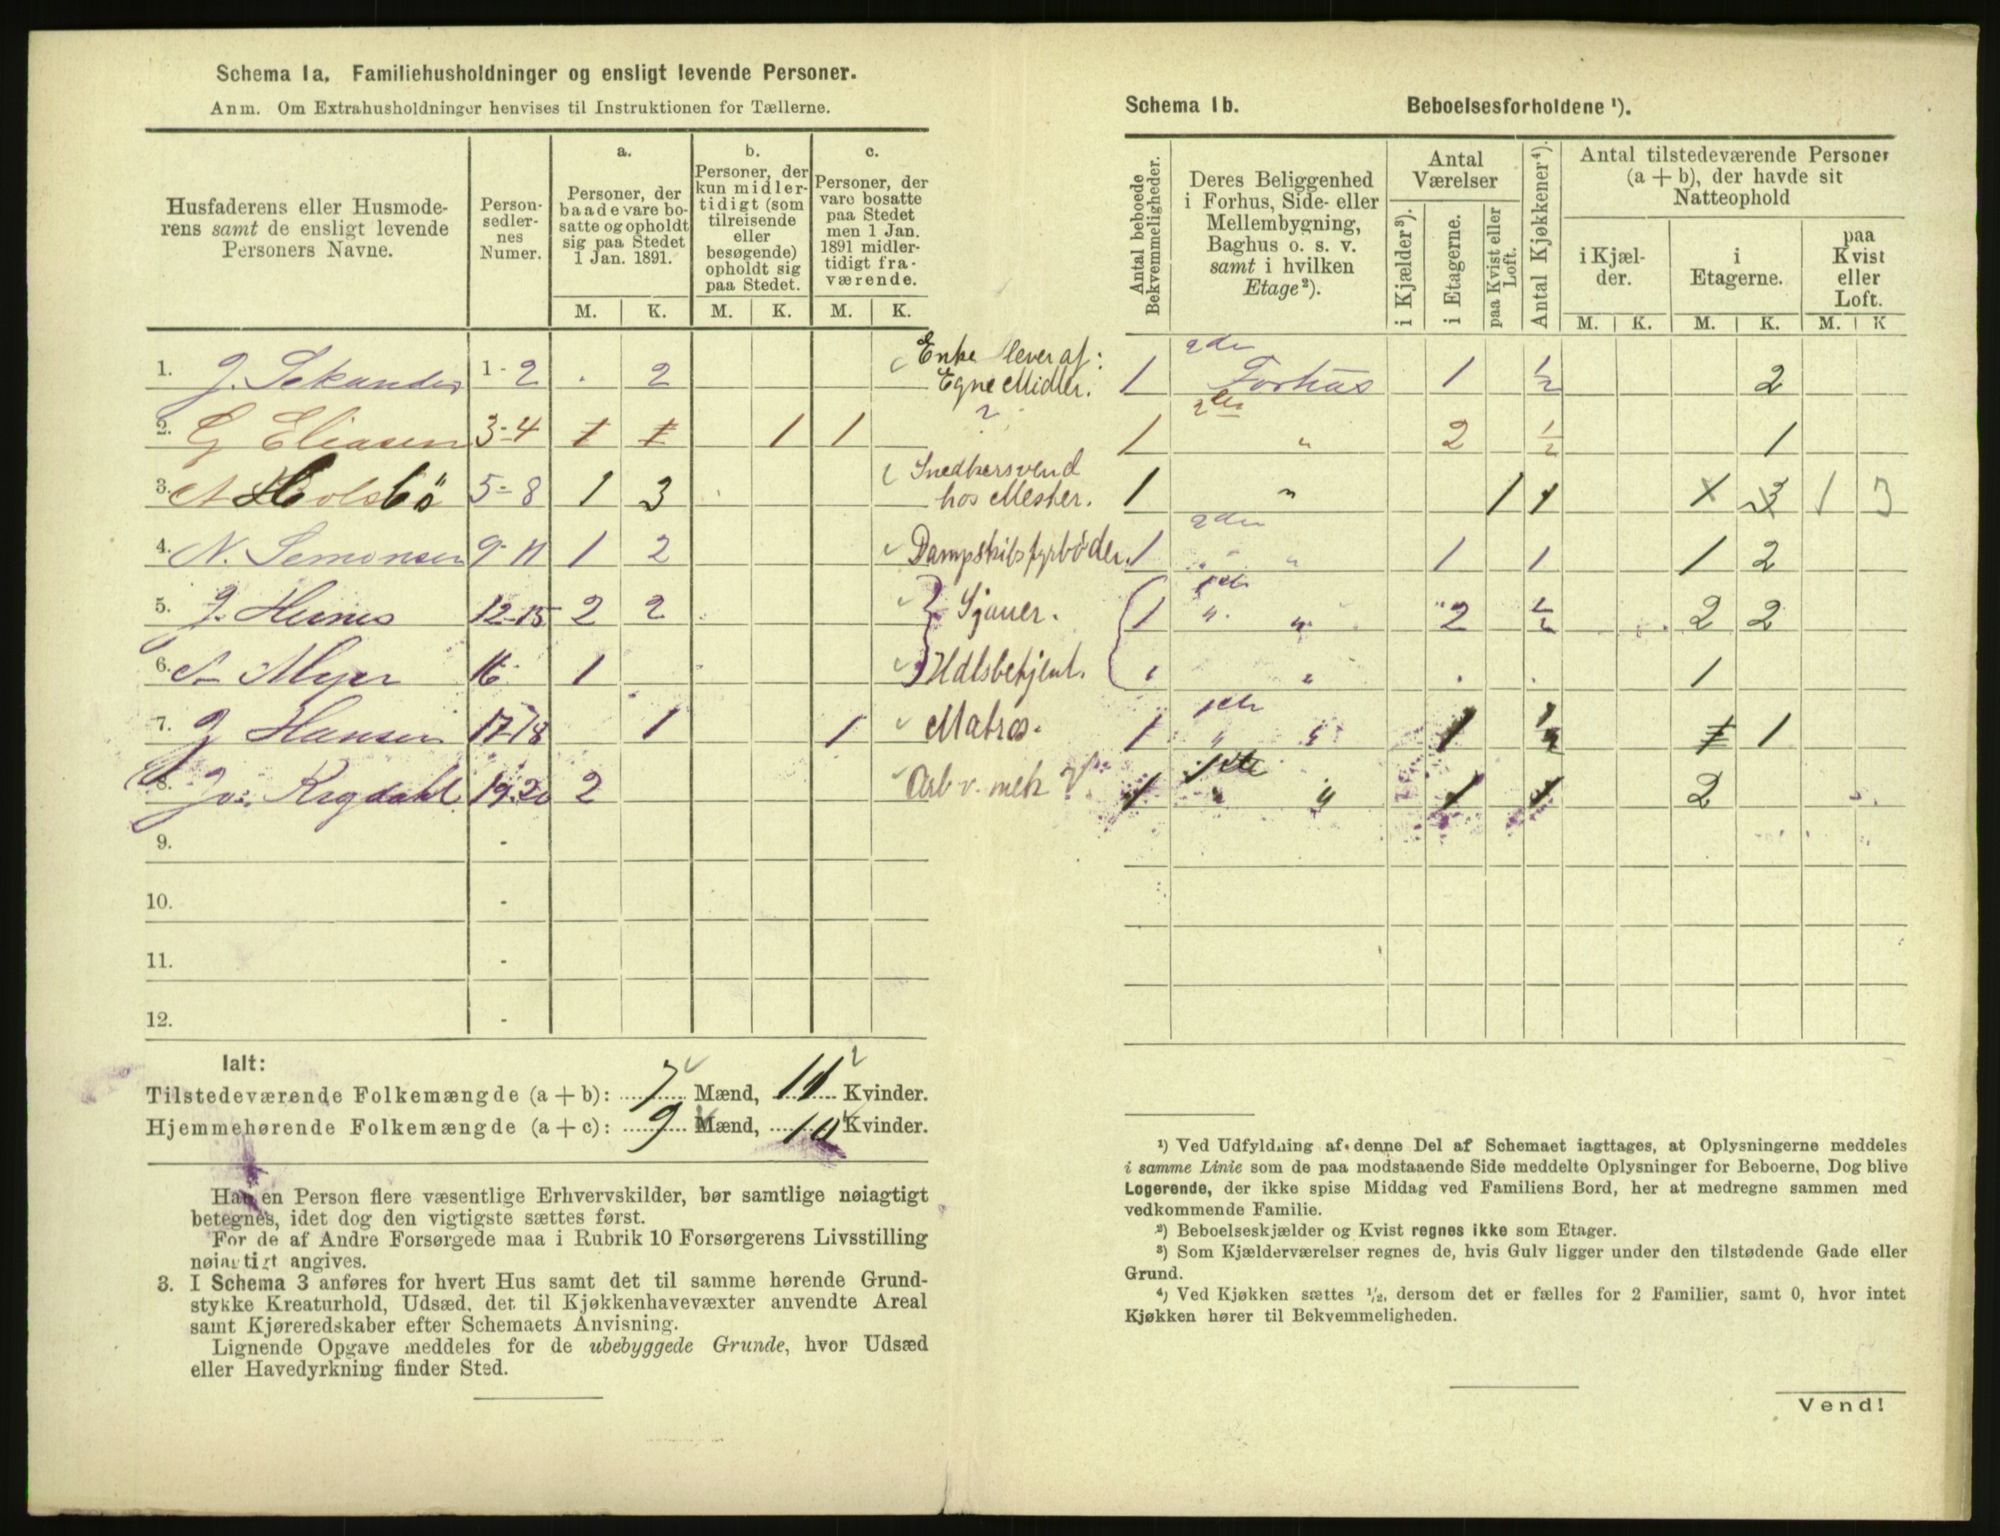 Schema 1a. Familiehusholdninger og ensligt levende Personer.
Anm. Om Extrahusholdninger henvises til Instruktionen for Tællerne.
Husfaderens eller Husmoderens samt de ensligt levende Personers Navne.
Person-sedlernes Numer.
a. Personer, der baade vare bosatte og opholdt sig paa Stedet 1 Jan. 1891.
b. Personer, der kun midlertidigt (som tilreisende eller besøgende) opholdt sig paa Stedet.
c. Personer, der vare bosatte paa Stedet men 1 Jan. 1891 midlertidigt fraværende.
M. K. M. K. M. K.
1. J. Sekander 1-2 . 2 Enke lever af: Egne Midler.
2. G Eliasen 3-4 1 1 1 1 ?
3. A Holsbö 5-8 1 3 Snedkersvend hos Mester.
4. N. Semonsen 9-11 1 2 Dampskibsfyrböder.
5. J. Heines 12-15 2 2 Sjauer.
6. A Meyer 16 1 Hdlsbetjent.
7. J Hansen 17-18 1 1 Matros.
8. Jo: Rygdahl 19-20 2 Arb v. mek
9. -
10. -
11. -
12. -
Ialt:
Tilstedeværende Folkemængde (a + b): 7 Mænd, 11 Kvinder.
Hjemmehørende Folkemængde (a + c): 9 Mænd, 10 Kvinder.
Har en Person flere væsentlige Erhvervskilder, bør samtlige nøiagtigt
betegnes, idet dog den vigtigste sættes først.
For de af Andre Forsørgede maa i Rubrik 10 Forsørgerens Livsstilling
nøiagtigt angives.
3. I Schema 3 anføres for hvert Hus samt det til samme hørende Grund-
stykke Kreaturhold, Udsæd, det til Kjøkkenhavevæxter anvendte Areal
samt Kjøreredskaber efter Schemaets Anvisning.
Lignende Opgave meddeles for de ubebyggede Grunde, hvor Udsæd
eller Havedyrkning finder Sted.
Schema 1b. Beboelsesforholdene ¹).
Antal beboede Bekvemmeligheder.
Deres Beliggenhed i Forhus, Side- eller Mellembygning, Baghus o. s. v. samt i hvilken Etage²).
Antal Værelser
i Kjælder³).
i Etagerne.
paa Kvist eller Loft.
Antal Kjøkkener⁴).
Antal tilstedeværende Personer (a + b), der havde sit Natteophold
i Kjælder.
i Etagerne.
paa Kvist eller Loft.
M. K. M. K. M. K
1 2den Forhus 1 1/2 2
1 2den " 2 1/2 1
1 " 1 1 1 3 1 3
1 2den " " 1 1 1 2
1 1ste " " 2 2 2
" " . . 1
1 1ste " " 1 1 1
1 1ste " " 1 1 2
¹) Ved Udfyldning af denne Del af Schemaet iagttages, at Oplysningerne meddeles
i samme Linie som de paa modstaaende Side meddelte Oplysninger for Beboerne, Dog blive
Logerende, der ikke spise Middag ved Familiens Bord, her at medregne sammen med
vedkommende Familie.
²) Beboelseskjælder og Kvist regnes ikke som Etager.
³) Som Kjælderværelser regnes de, hvis Gulv ligger under den tilstødende Gade eller
Grund.
⁴) Ved Kjøkken sættes ½, dersom det er fælles for 2 Familier, samt 0, hvor intet
Kjøkken hører til Bekvemmeligheden.
Vend!